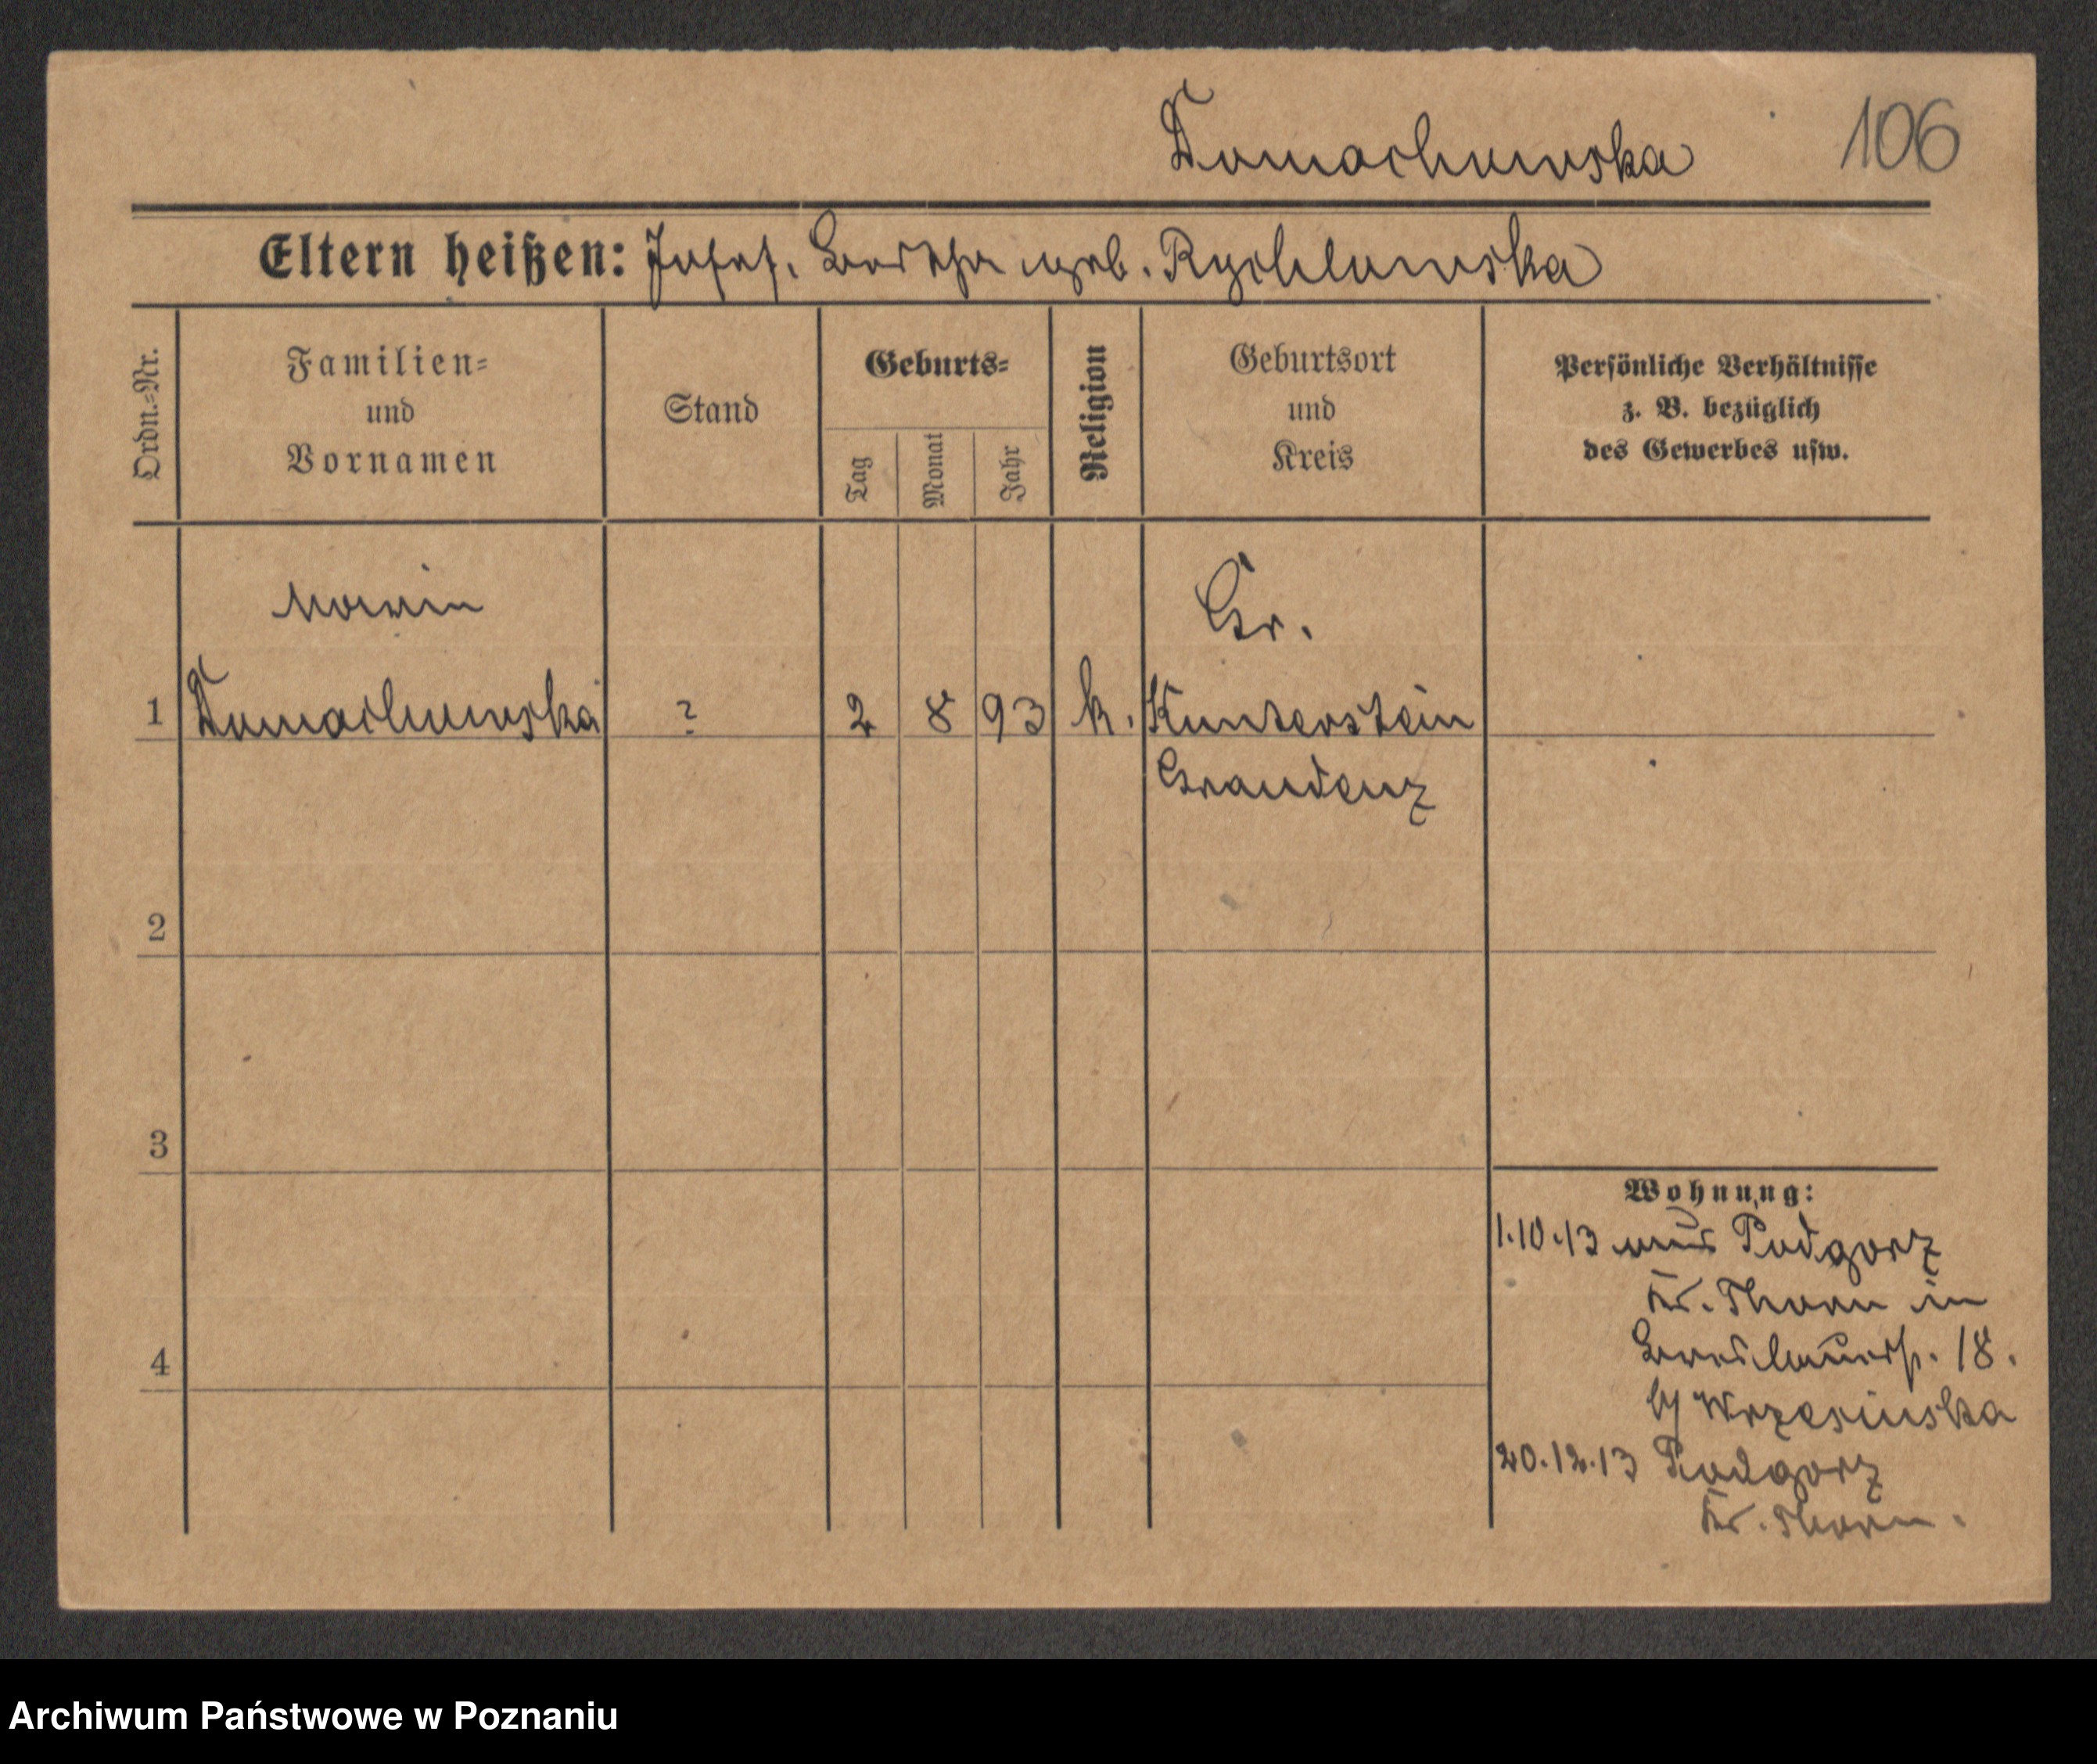 Domachowska
106
Eltern heißen: Josef. Bertha geb. Rychlowska
Ordn.-Nr.
Familien-
und
Vornamen
Stand
Geburts-
Tag
Monat
Jahr
Religion
Geburtsort
und
Kreis
Persönliche Verhältnisse
z. B. bezüglich
des Gewerbes usw.
Gr.
1 Domachowska ? 2 8 93 k. Kunterstein
Graudenz
2
3
4
Wohnung:
1.10.13 aus Podgorz
Kr. Thorn in
Breslauerstr. 18.
b/ Wrzesinska
20.12.13 Podgorz
Kr. Thorn.
Archiwum Państwowe w Poznaniu